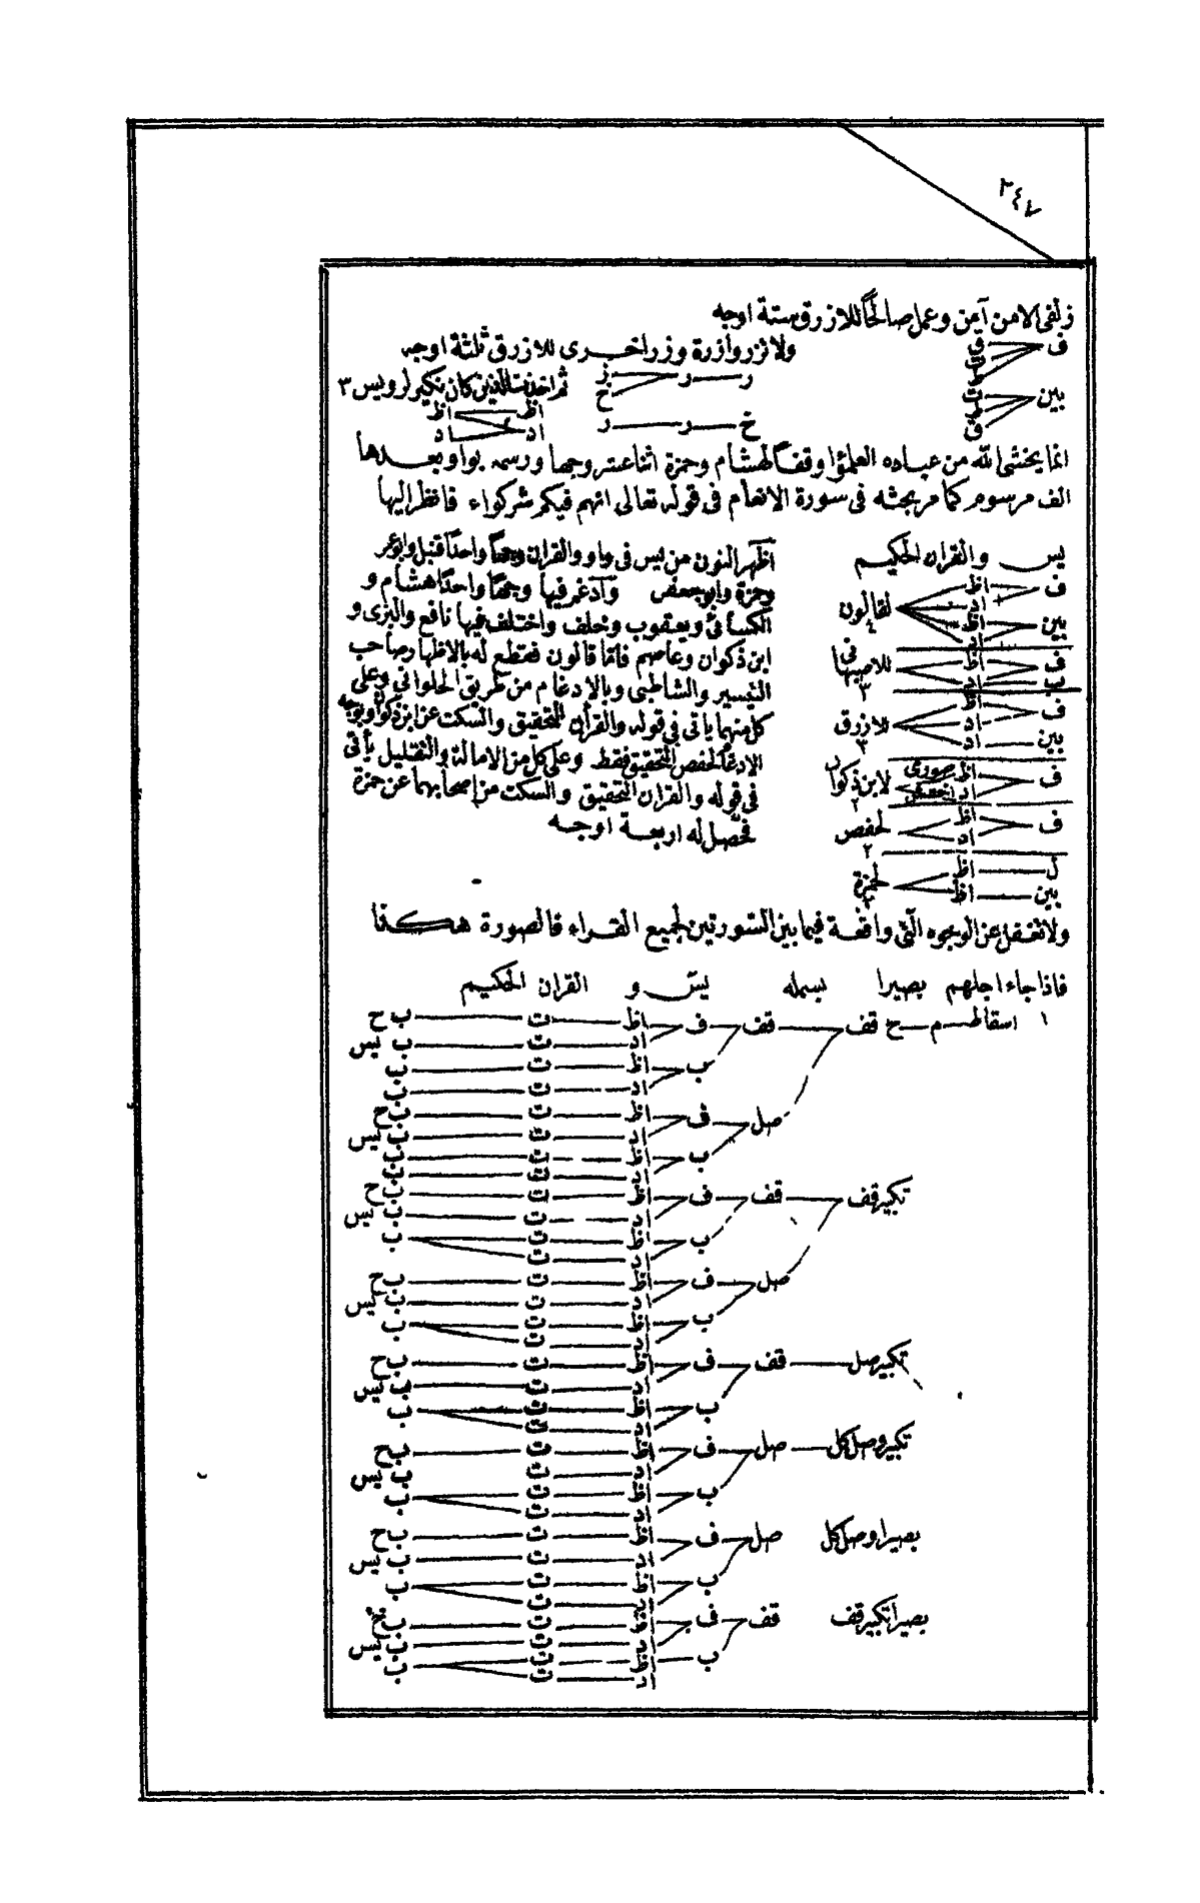 ٣٤٧
زلفى الا من آمن وعمل صالحًا للازرق ستة اوجه
ولا تزر وازرة وزر اخرى للازرق ثلثة اوجه
ف ق
ر ر ز
ثم اخذت الذين كان نكير لرويس ٣
ح
بين
اظ اظ
خ ر ر
ق
اد اد
انما يخشى الله من عباده العلمؤا وقفًا لهشام وحمزة اثنا عشر وجها ورسمه بواو بعدها
الف مرسوم كما مر بحثه فى سورة الانعام فى قوله تعالى انهم فيكم شركواء فانظر اليها
يس والقران الحكيم
ف اظ اد
بين اظ اد
لقالون ٤
ف اظ
ب اد
للاصبهانى ٣
ف اظ اد
بين اد
للازرق ٣
ف اظ صورى
اد اخفش
لابن ذكوان ٢
ف اظ اد
لحفص ٢
ل اظ
بين اظ
لحمزة
اظهر النون من يس فى واو والقران وجهًا واحدًا قنبل وابو عمر
وحمزة وابو جعفر وآدغم فيها وجهًا واحدًا هشام و
الكسائى ويعقوب وخلف واختلف فيها نافع والبزى و
ابن ذكوان وعاصم فامّا قالون فقطع له بالاظهار صاحب
التيسير والشاطبى وبالادغام من طريق الحلوانى وعلى
كل منهما ياتى فى قوله والقران التحقيق والسكت عن ابن ذكوان وبوجه
الادغام لحفص التحقيق فقط وعلى كل من الامالة والتقليل يأتى
فى قوله والقران التحقيق والسكت من اصحابهما عن حمزة
فحصل له اربعة اوجه
ولا تغفل عن الوجوه التى واقعة فيما بين السورتين لجميع القراء فالصورة هكذا
فاذا جاء اجلهم بصيرا بسمله يس و القران الحكيم
١ اسقاط م ح قف قف ف اظ ت ب ح
اد ت ب يس
ب اظ ت ب
اد ت ب
صل ف اظ ت ب ح
اد ت ب يس
ب اظ ت ب
اد ت ب
تكبير قف قف ف اظ ت ب ح
اد ت ب يس
ب اظ ت ب
اد ت
صل ف اظ ت ب ح
اد ت ب يس
ب اظ ت ب
اد ت
تكبير صل قف ف اظ ت ب ح
اد ت ب يس
ب اظ ت ب
اد ت
تكبير وصل كل صل ف اظ ت ب ح
اد ت ب يس
ب اظ ت ب
اد ت
بصيرا وصل كل صل ف اظ ت ب ح
اد ت ب يس
ب اظ ت ب
اد ت
بصيرا تكبير قف قف ف اظ ت ب ح
اد ت ب يس
ب اظ ت ب
اد ت